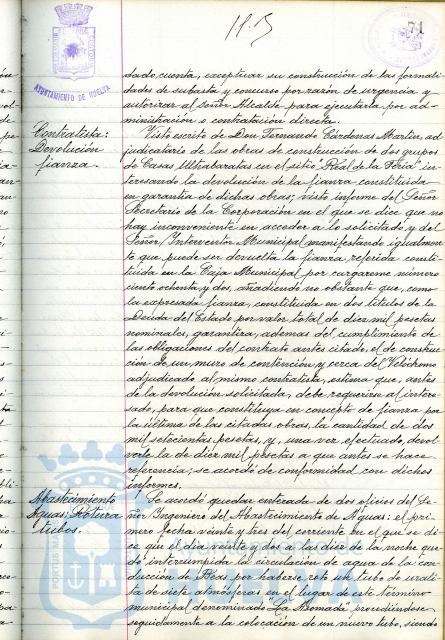 71
AYUNTAMIENTO DE HUELVA
dado cuenta, exceptuar su construcción de las formali-
dades de subasta y concurso por razón de urgencia y
autorizar al señor Alcalde para ejecutarla por ad-
ministración o contratación directa.
Contratista:
Devolución
fianza.
Visto escrito de Don Fernando Cárdenas Martín, ad-
judicatario de las obras de construcción de dos grupos
de Casas Ultrabaratas en el sitio "Real de la Feria" in-
teresando la devolución de la fianza constituida
en garantía de dichas obras; visto informe del Señor
Secretario de la Corporación en el que se dice que no
hay inconveniente en acceder a lo solicitado y del
Señor Interventor Municipal manifestando igualmen-
te que puede ser devuelta la fianza referida consti-
tuida en la Caja Municipal por cargareme número
ciento ochenta y dos, añadiendo no obstante que, como
la expresada fianza, constituida en dos títulos de la
Deuda del Estado por valor total de diez mil pesetas
nominales, garantiza, además del cumplimiento de
las obligaciones del contrato antes citado, el de construc-
ción de un muro de contención y cerca del Velódromo
adjudicado al mismo contratista, estima que, antes
de la devolución solicitada, debe requerirse al intere-
sado, para que constituya en concepto de fianza por
la última de las citadas obras, la cantidad de dos
mil setecientas pesetas, y, una vez efectuado, devol-
verle la de diez mil pesetas a que antes se hace
referencia; se acordó de conformidad con dichos
informes.
Abastecimiento
Aguas; Rotura
tubos.
Se acordó quedar enterada de dos oficios del Se-
ñor Ingeniero del Abastecimiento de Aguas: el pri-
mero fecha veinte y tres del corriente en el que se di-
ce que el día veinte y dos a las diez de la noche que-
dó interrumpida la circulación de agua de la con-
ducción de Beas por haberse roto un tubo de urali-
ta de siete atmósferas en el lugar de este término
municipal denominado "La Nomada" procediéndose
seguidamente a la colocación de un nuevo tubo, siendo